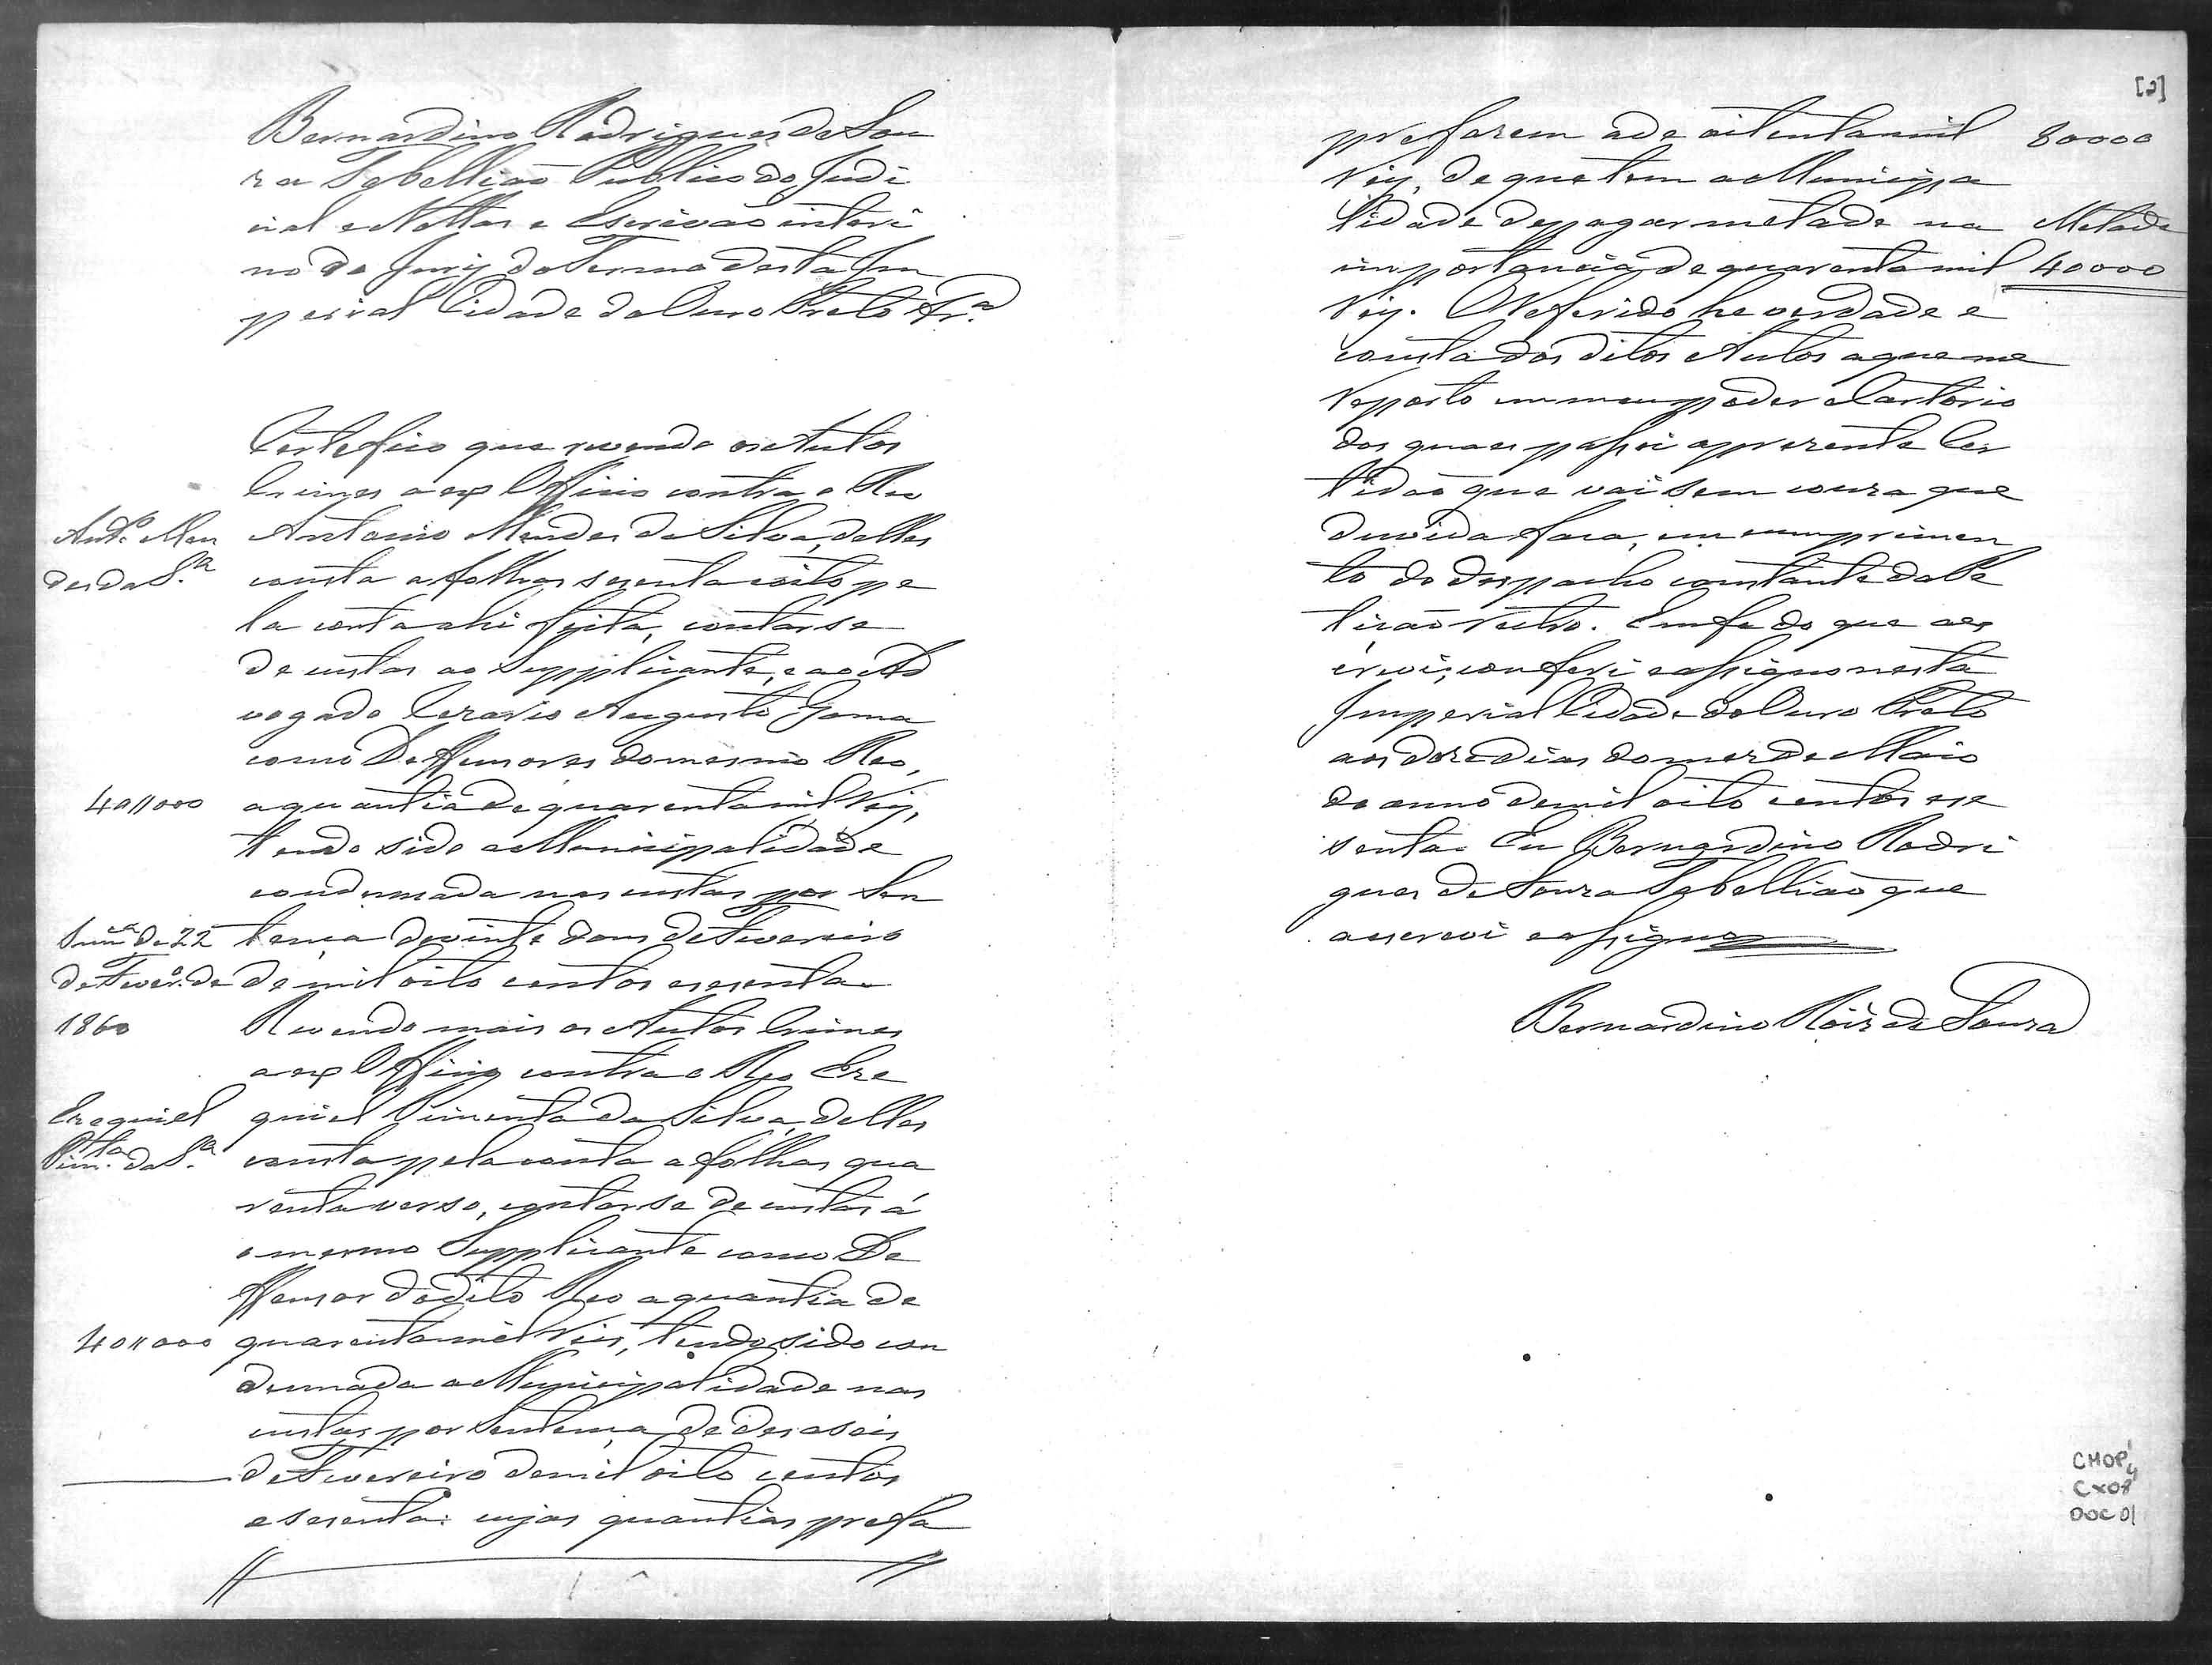 Bernardino Rodrigues de Sou
za Tabellião Publico do Judi
cial e Nottas e Escrivão interi
no do Jury do Termo desta Im
perial Cidade do Ouro Preto &r.ª
Certefico que revendo os Autos
Crimes a exp Officio contra o Reo
Ant.º Men
Antonio Mendes da Silva, delles
des da S.ª
consta a folhas secenta e oito pe
la conta ahi feita, contar se
de custas ao Supplicante, e ao Ad
vogado Cezario Augusto Gama
como Deffensores do mesmo Reo,
40//000
a quantia de quarenta mil reis,
tendo sido a Municipalidade
condemnada nas custas por Sen
Senç.ª de 22
tença de vinte dous de Fevereiro
de Fever.º de
de mil oito centos e secenta
1860
Revendo mais os Autos Crimes
a exp Officio contra o Reo Eze
Ezequiel
quiel Pimenta da Silva, delles
Pim.ta da S.ª
consta pela conta a folhas qua
renta verso, contar se de custas á
o mesmo Supplicante como De
ffensor do dito Reo a quantia de
40//000
quarenta mil reis, tendo sido con
demnada a Municipalidade nas
custas por Sentença de deseseis
de Fevereiro de mil oito centos
e secenta: cujas quantias prefa
[2]
prefazem a de oitenta mil
80000
reis, de que tem a Municipa
lidade de pagar metade na
Metade
importancia de quarenta mil
40000
reis. O Referido he verdade e
consta dos ditos Autos a que me
reporto em meu poder e Cartorio
dos quaes passei a prezente Cer
tidão que vai sem couza que
duvida faca, em cumprimen
to do despacho constante da Pe
tição retro. Em fe do que a es
crevi, conferi e assigno nesta
Imperial Cidade do Ouro Preto
aos doze dias do mez de Maio
do anno de mil oito centos e se
senta. Eu Bernardino Rodri
gues de Souza Tabellião que
a escrevi e assigno
Bernardino Roiz de Souza
CMOP
CX08
DOC 01